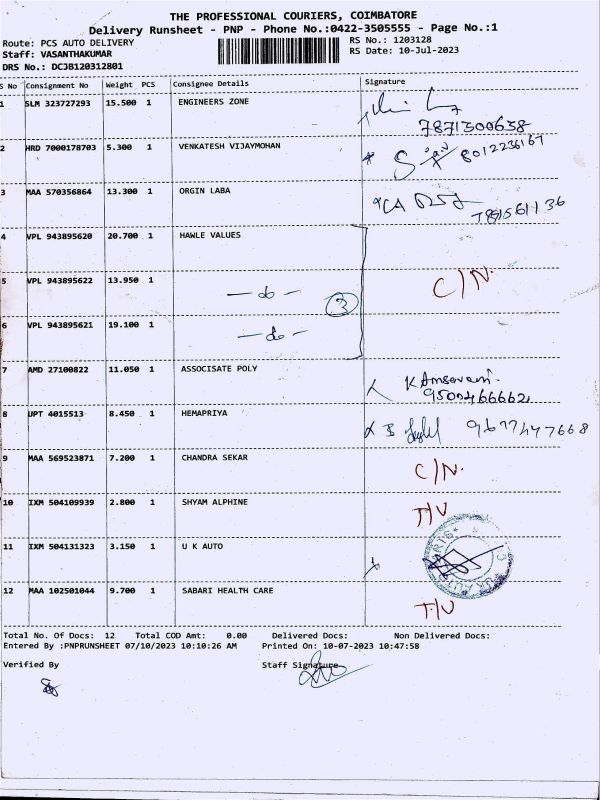 THE PROFESSIONAL COURIERS, COIMBATORE
Delivery Runsheet - PNP - Phone No.:0422-3505555 - Page No.:1
Route: PCS AUTO DELIVERY RS No.: 1203128
Staff: VASANTHAKUMAR RS Date: 10-Jul-2023
DRS No.: DCJB120312801
S No Consignment No Weight PCS Consignee Details Signature
1 SLM 323727293 15.500 1 ENGINEERS ZONE
7871500658
2 HRD 7000178703 5.300 1 VENKATESH VIJAYMOHAN 8012236167
3 MAA 570356864 13.300 1 ORGIN LABA
4 VPL 943895620 20.700 1 HAWLE VALUES
5 VPL 943895622 13.950 1 — do — 3 C/N.
6 VPL 943895621 19.100 1 — do —
7 AMD 27100822 11.050 1 ASSOCISATE POLY
9500466662
8 UPT 4015513 8.450 1 HEMAPRIYA 9677447668
9 MAA 569523871 7.200 1 CHANDRA SEKAR C/N.
10 IXM 504109939 2.800 1 SHYAM ALPHINE T/V
11 IXM 504131323 3.150 1 U K AUTO
12 MAA 102501044 9.700 1 SABARI HEALTH CARE T/V
Total No. Of Docs: 12 Total COD Amt: 0.00 Delivered Docs: Non Delivered Docs:
Entered By :PNPRUNSHEET 07/10/2023 10:10:26 AM Printed On: 10-07-2023 10:47:58
Verified By Staff Signature